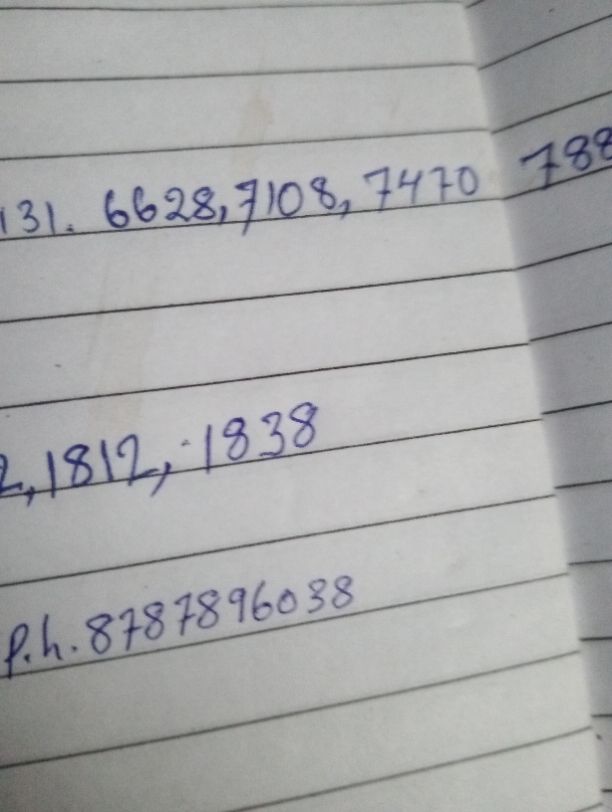 131. 6628, 7108, 7470 788
2, 1812, 1838
P.h. 8787896038